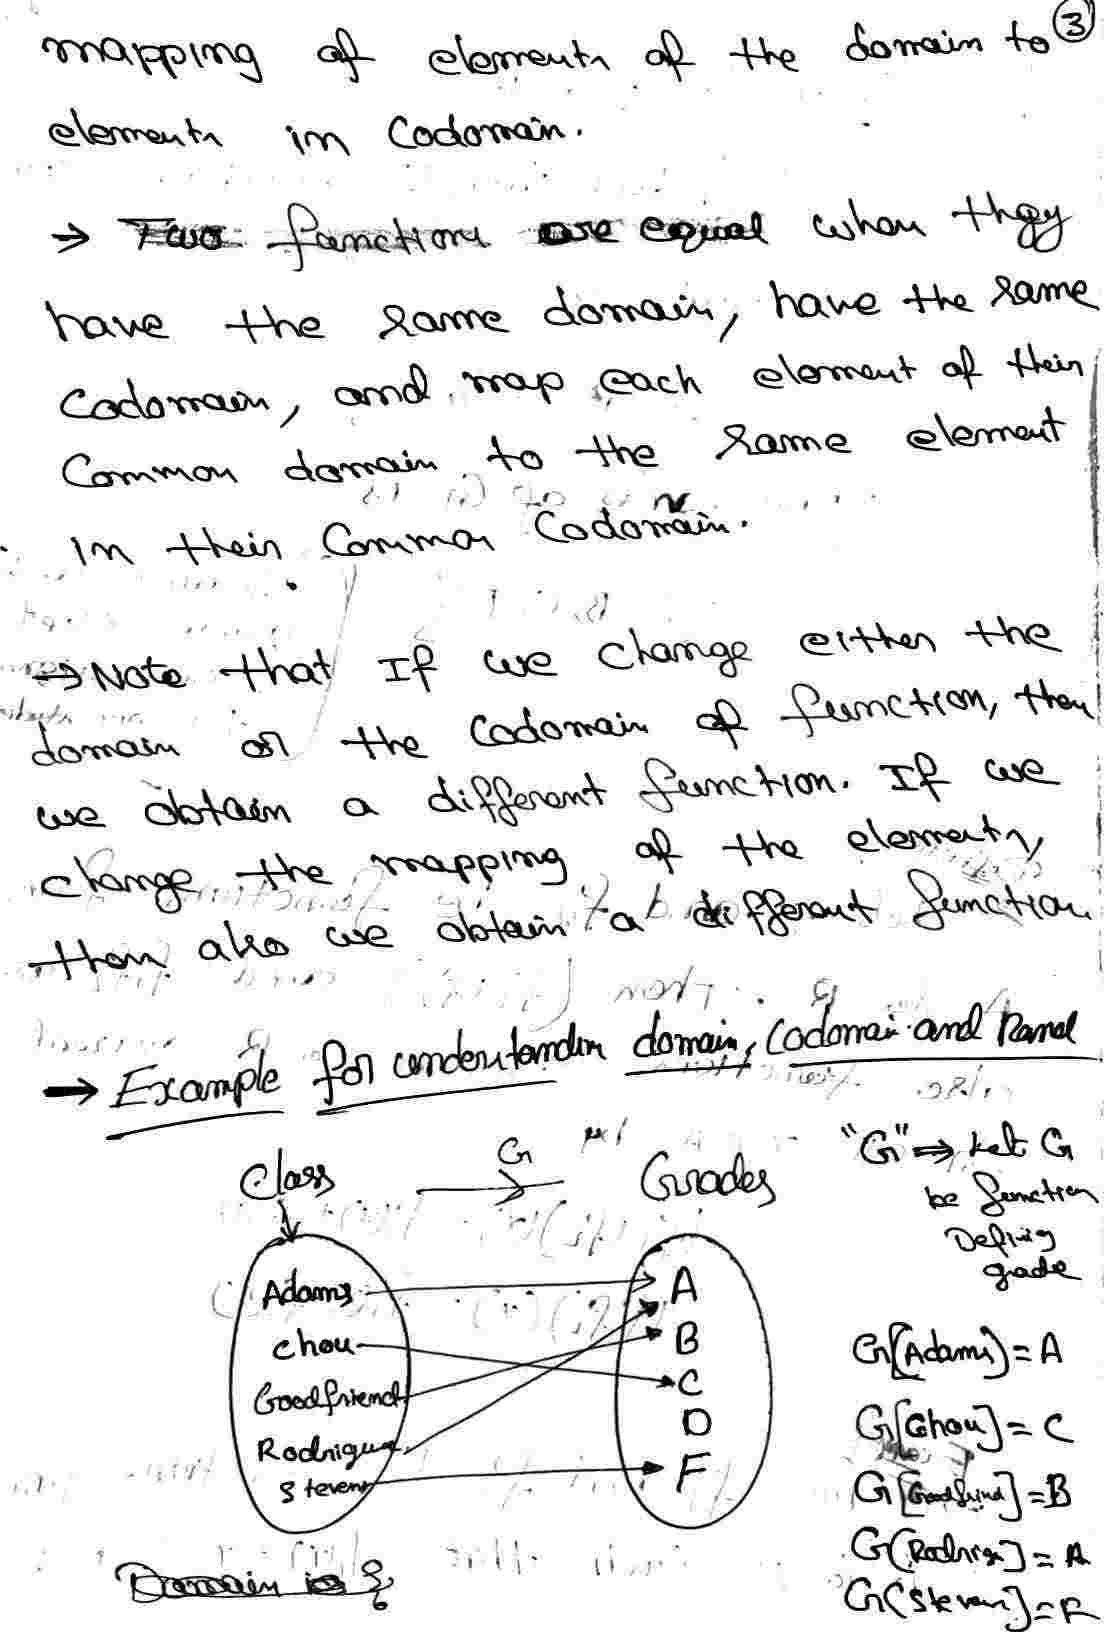 3
mapping of elements of the domain to
elements in Codomain.
→ Two functions are equal when they
have the same domain, have the same
Codomain, and map each element of their
Common domain to the same element
in their Common Codomain.
→ Note that If we change either the
domain or the Codomain of function, then
we obtain a different function. If we
change the mapping of the elements,
then also we obtain a different function.
→ Example for understandin domain, Codomai and
Class G Grades
"G" ⇒ Let G
be function
Defining
grade
Adams A
Chou B
Goodfriend C
Rodriguez D
Stevens F
G[Adams] = A
G[Chou] = C
G[Goodfrind] = B
G[Rodrigu] = A
G[Steven] = F
Domain is {